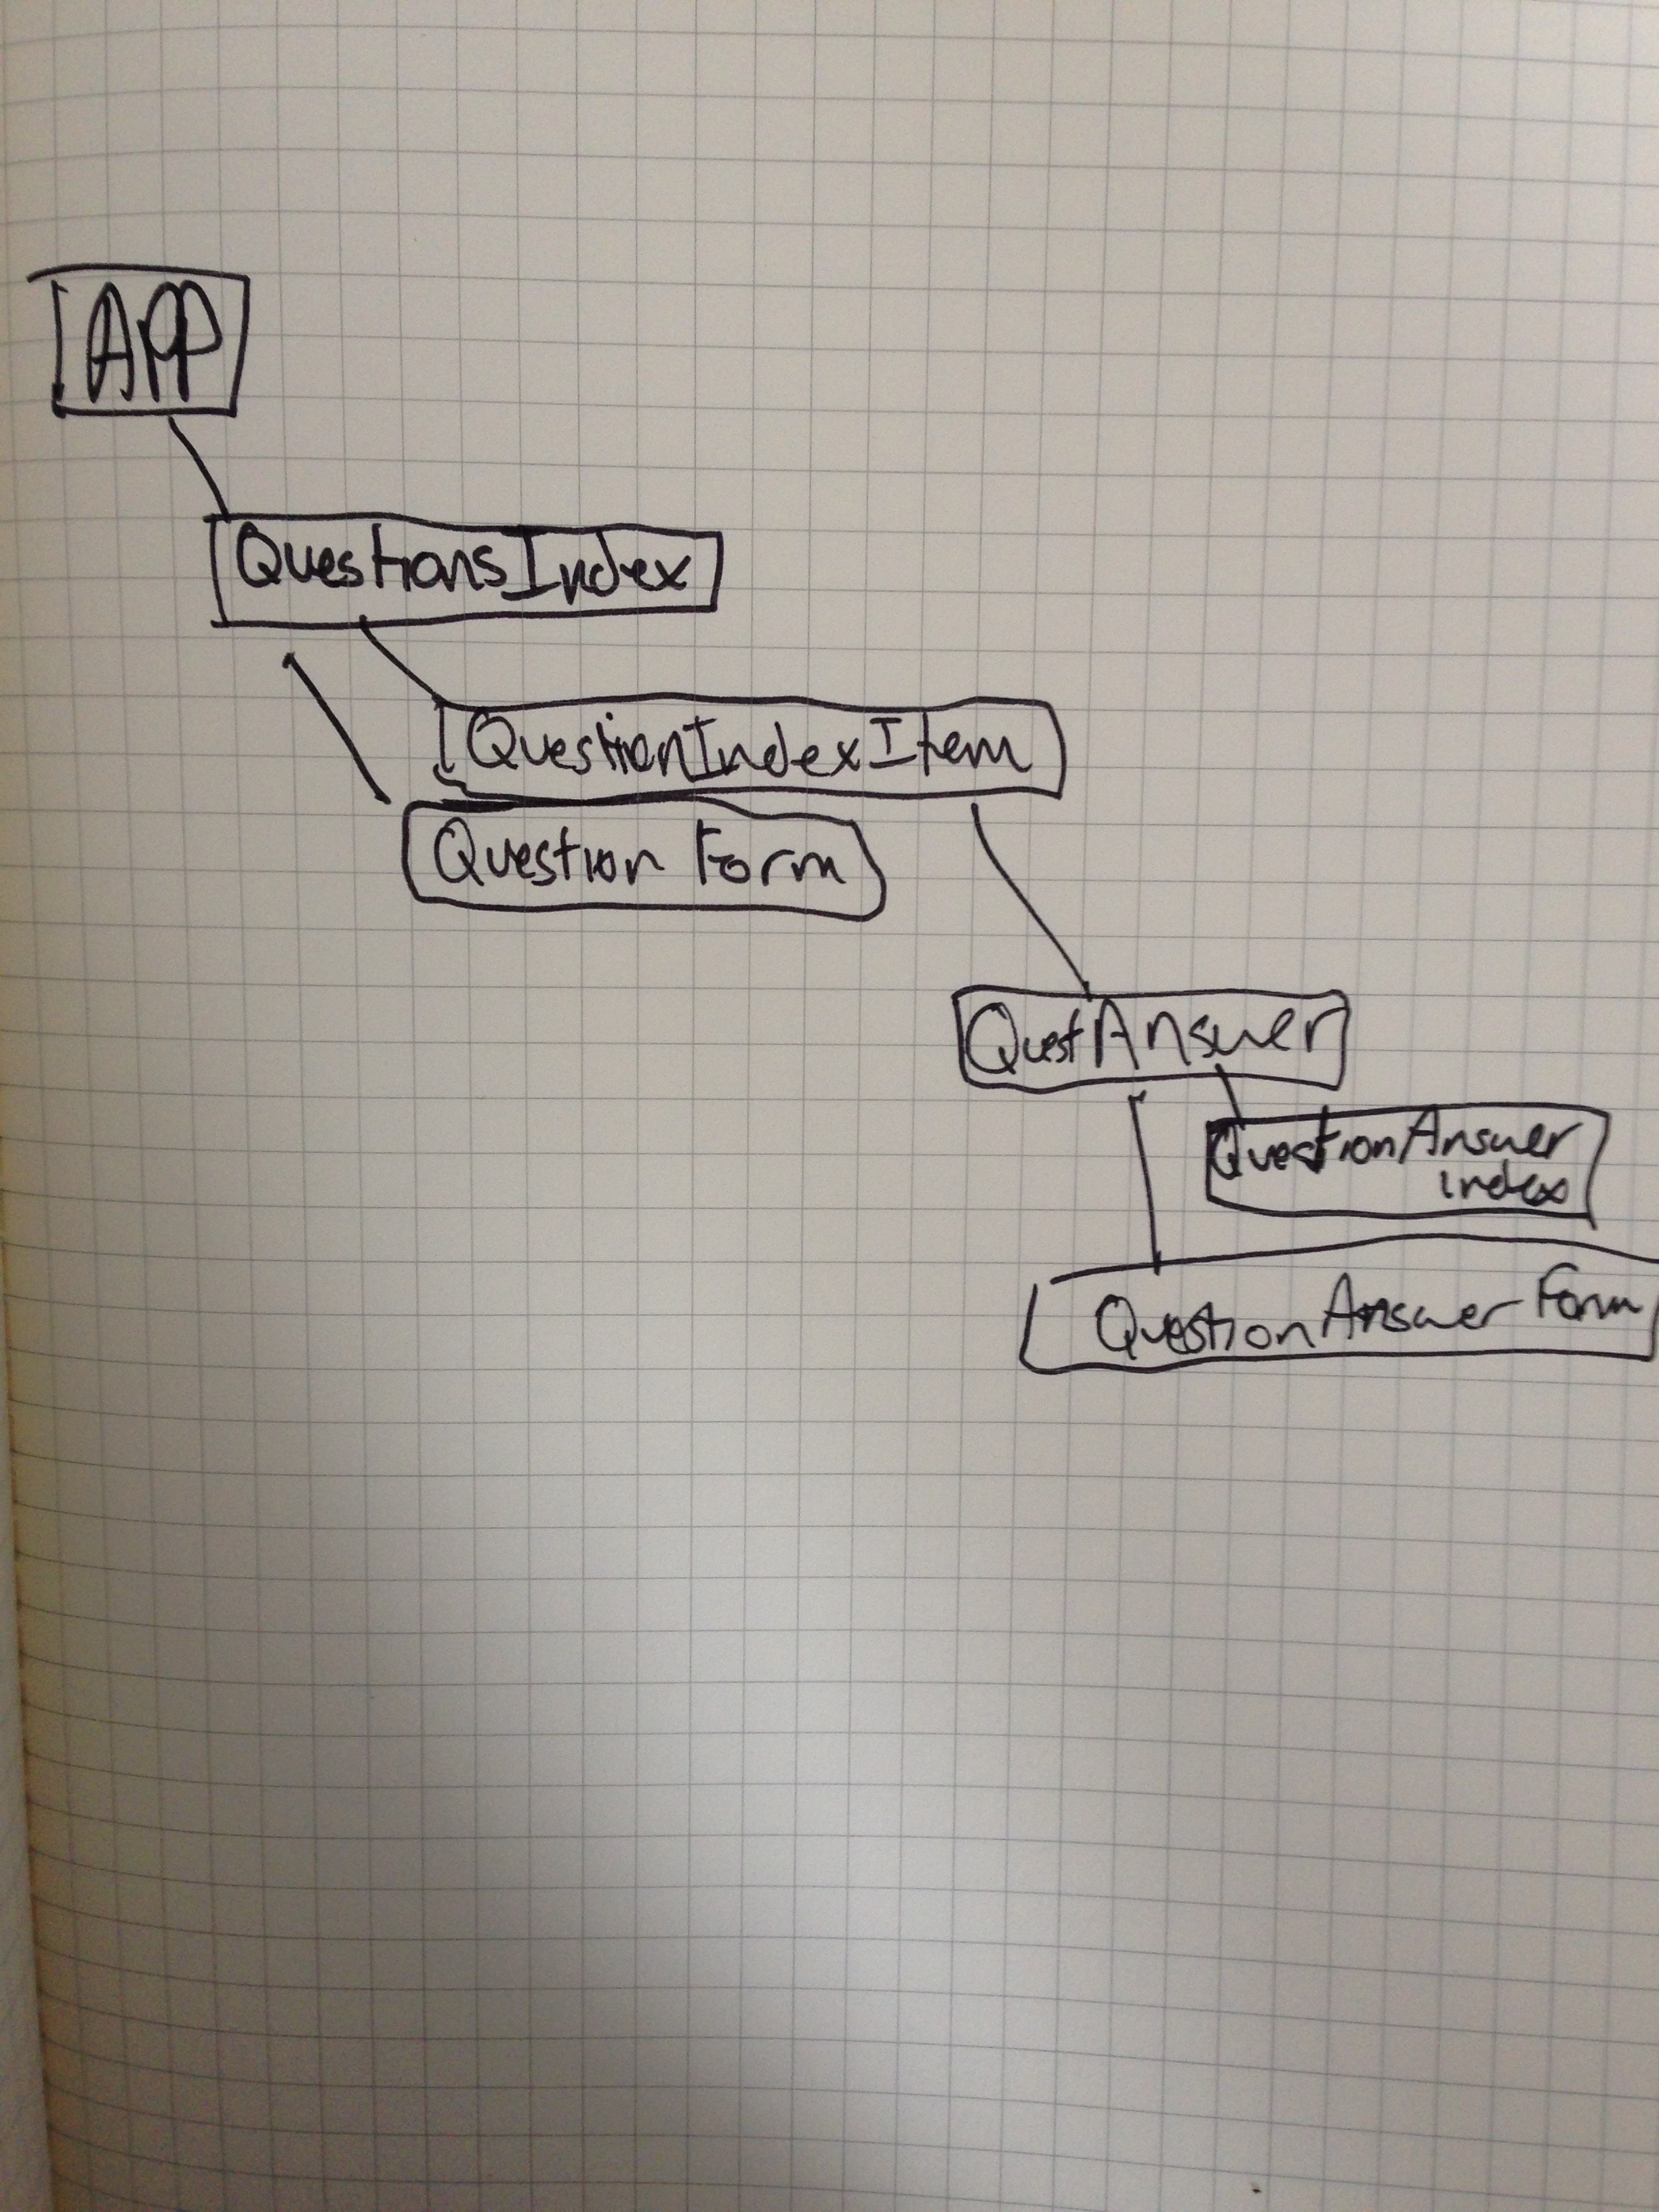 APP
QuestionsIndex
QuestionIndexItem
Question Form
QuestAnswer
QuestionAnswer
index
QuestionAnswer Form